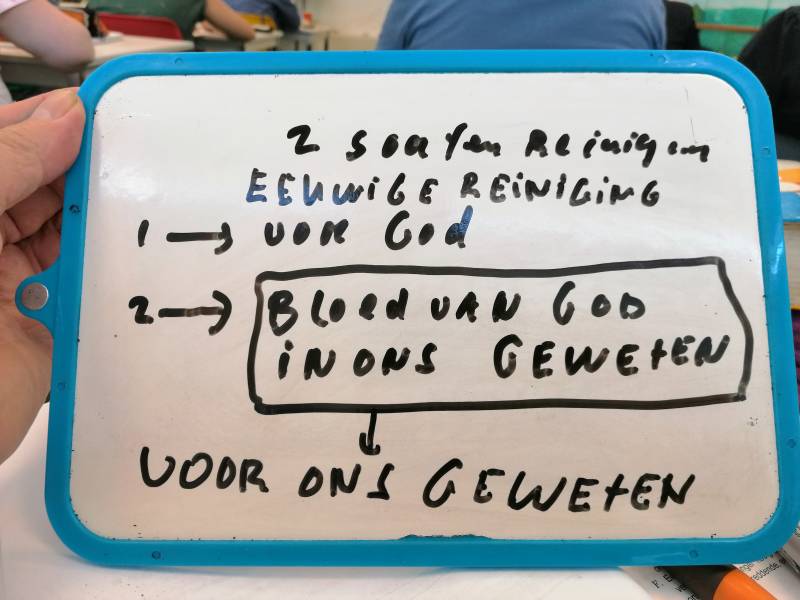 2 soorten Reinigen
EEUWIGE REINIGING
1 → VOR God
2 → BLOED VAN GOD
IN ONS GEWETEN
VOOR ONS GEWETEN